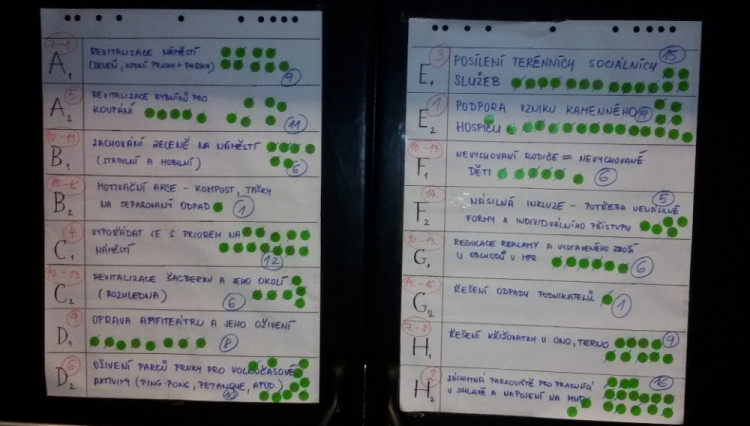 7-8
A1 REVITALIZACE NÁMĚSTÍ
(ZELEŇ, VODNÍ PRVKY + PARKY)
9
5
A2 REVITALIZACE RYBNÍKŮ PRO
KOUPÁNÍ
11
10-13
B1 ZACHOVÁNÍ ZELENĚ NA NÁMĚSTÍ
(STABILNÍ A MOBILNÍ)
6
15-16
B2 MOTIVAČNÍ AKCE - KOMPOST, TAŠKY
NA SEPAROVANÝ ODPAD
1
4
C1 VYPOŘÁDAT SE S PRIOREM NA
NÁMĚSTÍ
12
10-13
C2 REVITALIZACE ŠACBERKU A JEHO OKOLÍ
(ROZHLEDNA)
6
9
D1 OPRAVA AMFITEÁTRU A JEHO OŽIVENÍ
8
6
D2 OŽIVENÍ PARKŮ PRVKY PRO VOLNOČASOVÉ
AKTIVITY (PING-PONG, PETANGUE, APOD.)
10
3
E1 POSÍLENÍ TERÉNNÍCH SOCIÁLNÍCH
SLUŽEB
15
1
E2 PODPORA VZNIKU KAMENNÉHO
HOSPICU
10-13
F1 NEVYCHOVANÍ RODIČE = NEVYCHOVANÉ
DĚTI
6
14
F2 NÁSILNÁ INKLUZE - POTŘEBA NENÁSILNÉ
FORMY A INDIVIDUÁLNÍHO PŘÍSTUPU
5
10-13
G1 REGULACE REKLAMY A VYSTAVENÉHO ZBOŽÍ
U OBCHODŮ V MPR
6
15-16
G2 ŘEŠENÍ ODPADY PODNIKATELŮ
1
7-8
H1 ŘEŠENÍ KŘIŽOVATKY U ONO, TERNO
9
2
H2 ZÁCHYTNÁ PARKOVIŠTĚ PRO PRACUJÍCÍ
V JIHLAVĚ A NAPOJENÍ NA MHD
16